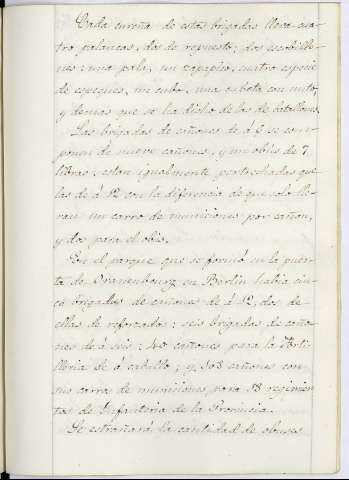 Cada cureña de estas brigadas lleva cua-
tro palancas, dos de repuesto; dos escobillo-
nes: una pala, un zapapico, cuatro especie
de espeques, un cubo, una cubeta con unto,
y demas que se ha dicho de los de batallones.
Las brigadas de cañones de á 6 se com-
ponen de nueve cañones, y un obús de 7
libras: estan igualmente pertrechadas que
las de á 12 con la diferencia de que solo lle-
van un carro de municiones por cañon,
y dos para el obús.
En el parque que se formó en la puer-
ta de Oranenbourg en Berlin habia cin-
co brigadas de cañones de á 12, dos de
ellas de reforzados: seis brigadas de caño-
nes de á seis: 40 cañones para la Arti-
lleria de á caballo; y 108 cañones con
su carro de municiones para 18 regimien-
tos de Infanteria de la Provincia.
Se estrañará la cantidad de obuses